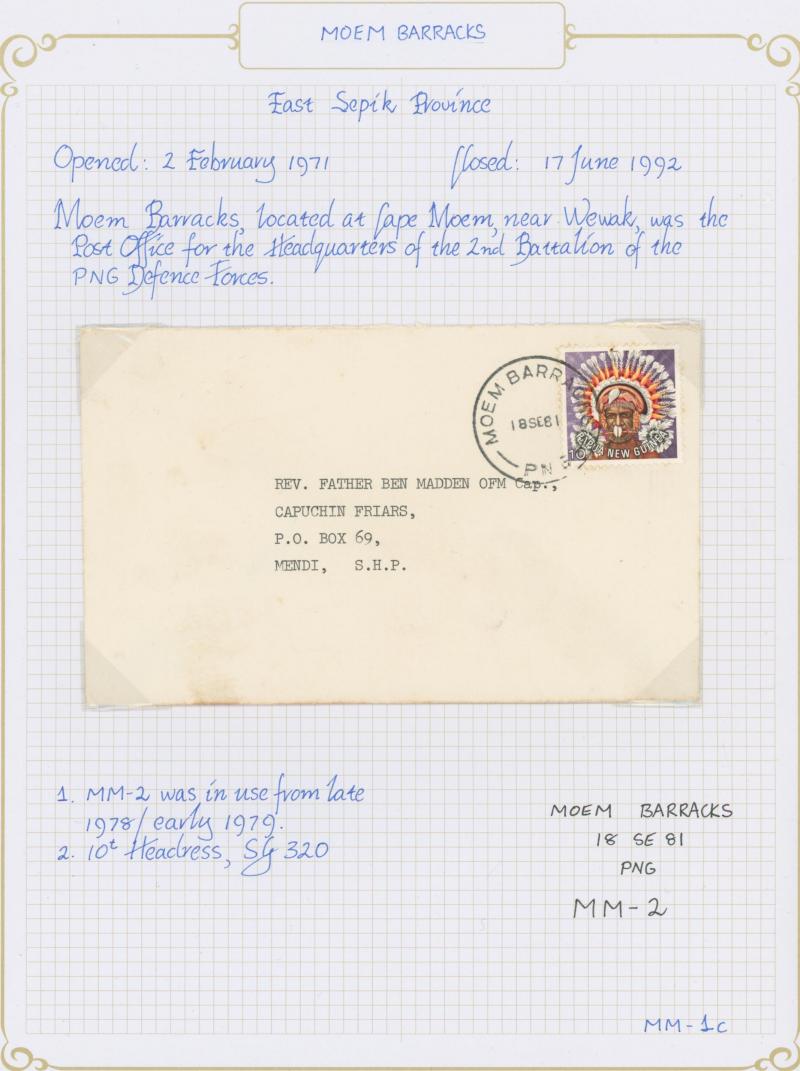 MOEM BARRACKS
East Sepik Province
Opened: 2 February 1971 Closed: 17 June 1992
Moem Barracks, located at Cape Moem, near Wewak, was the
Post Office for the Headquarters of the 2nd Battalion of the
PNG Defence Forces.
MOEM BARRAC
18 SE 81
PN
10t
PAPUA NEW GUINEA
REV. FATHER BEN MADDEN OFM Cap.,
CAPUCHIN FRIARS,
P.O. BOX 69,
MENDI, S.H.P.
1. MM-2 was in use from late
1978/ early 1979.
2. 10t Headress, SG 320
MOEM BARRACKS
18 SE 81
PNG
MM-2
MM-1c